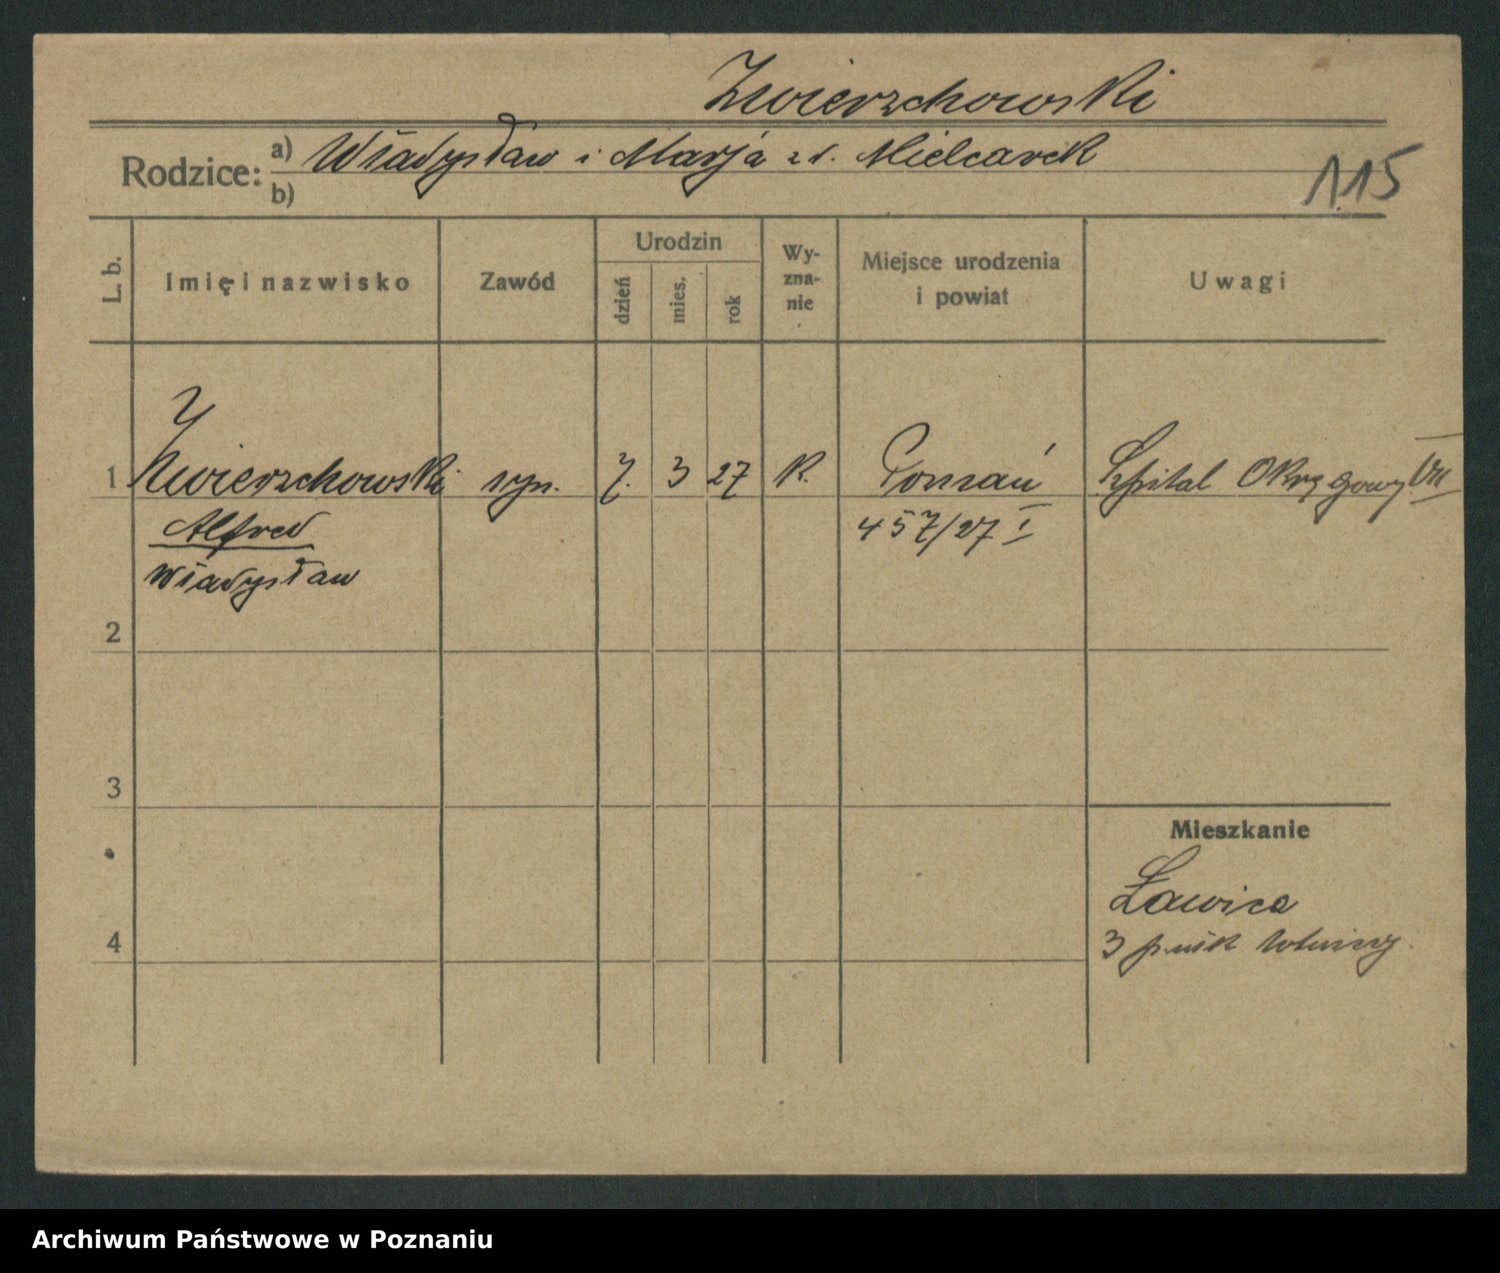 Zwierzchowski
Rodzice:
a) Władysław i Marja z d. Mielcarek
b)
115
L. b.
Imię i nazwisko
Zawód
Urodzin
dzień
mies.
rok
Wy-
zna-
nie
Miejsce urodzenia
i powiat
Uwagi
1 Zwierzchowski syn. 7. 3 27 K. Poznań Szpital Okręgowy VII
Alfred 457/27 I
Władysław
2
3
Mieszkanie
Ławica
4 3 pułk lotniczy
Archiwum Państwowe w Poznaniu